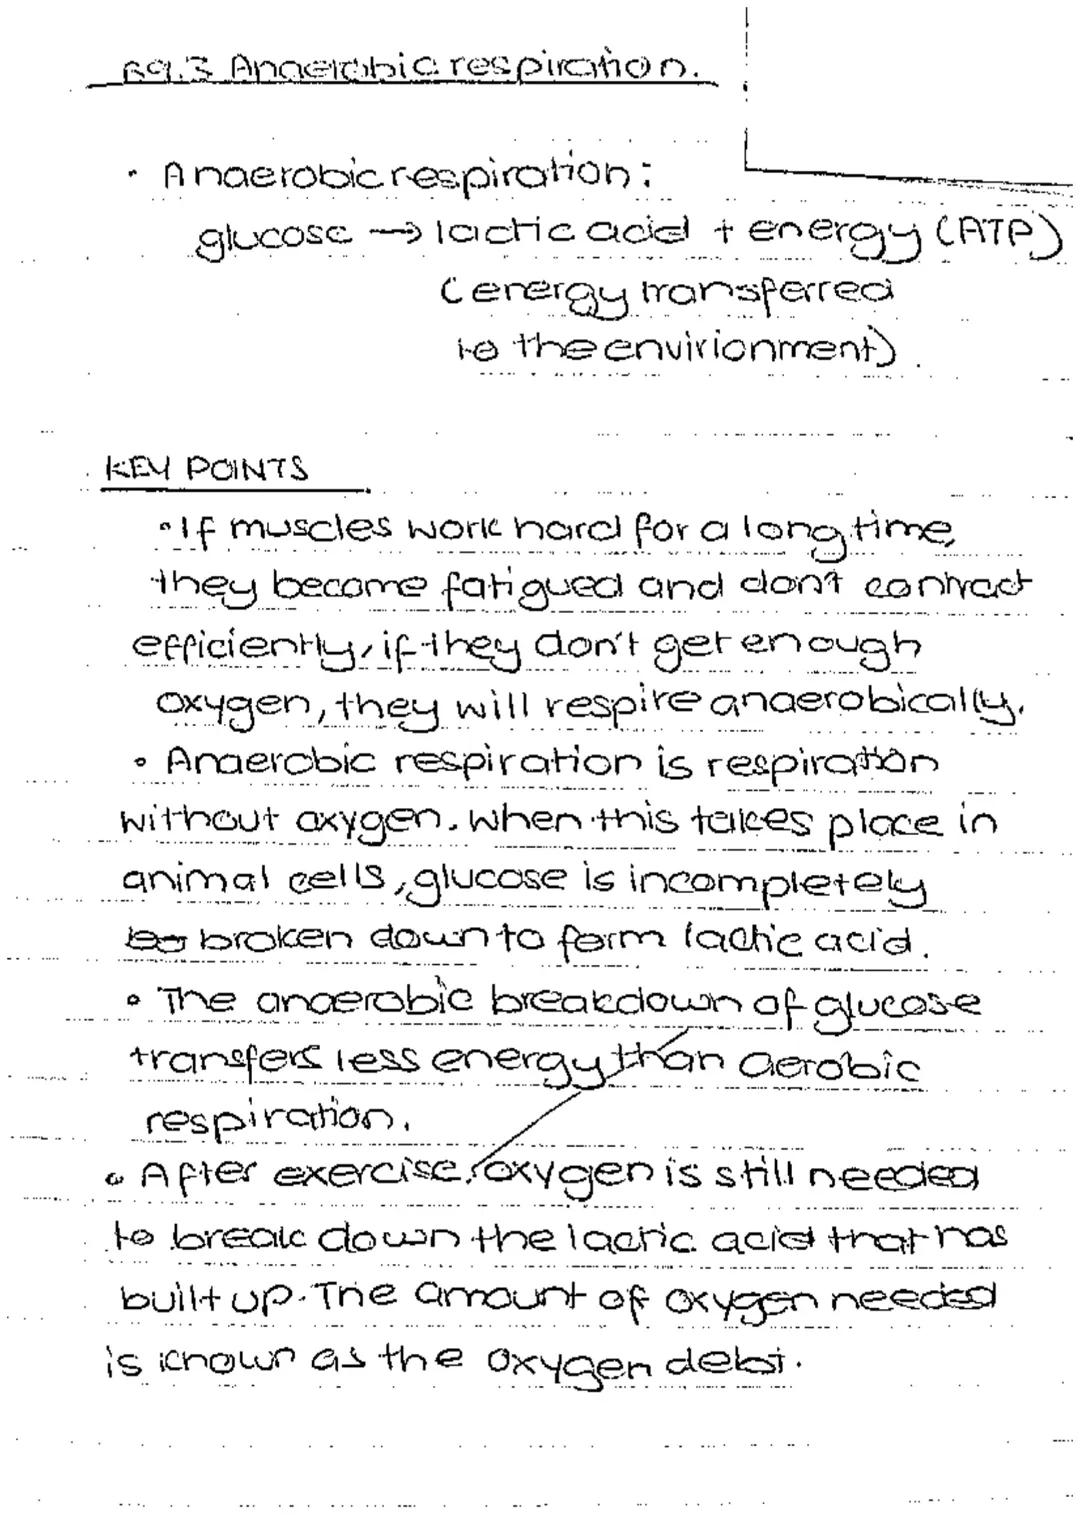 B9.3 Anaerobic respiration.
• Anaerobic respiration:
glucose → lactic acid + energy (ATP)
(energy transferred
to the envirionment)
KEY POINTS
• If muscles work hard for a long time,
they become fatigued and don't contract
efficiently, if they don't get enough
oxygen, they will respire anaerobically.
• Anaerobic respiration is respiration
without oxygen. When this takes place in
animal cells, glucose is incompletely
broken down to form lactic acid.
• The anaerobic breakdown of glucose
transfers less energy than aerobic
respiration.
• After exercise, oxygen is still needed
to break down the lactic acid that has
built up. The amount of oxygen needed
is known as the oxygen debt.